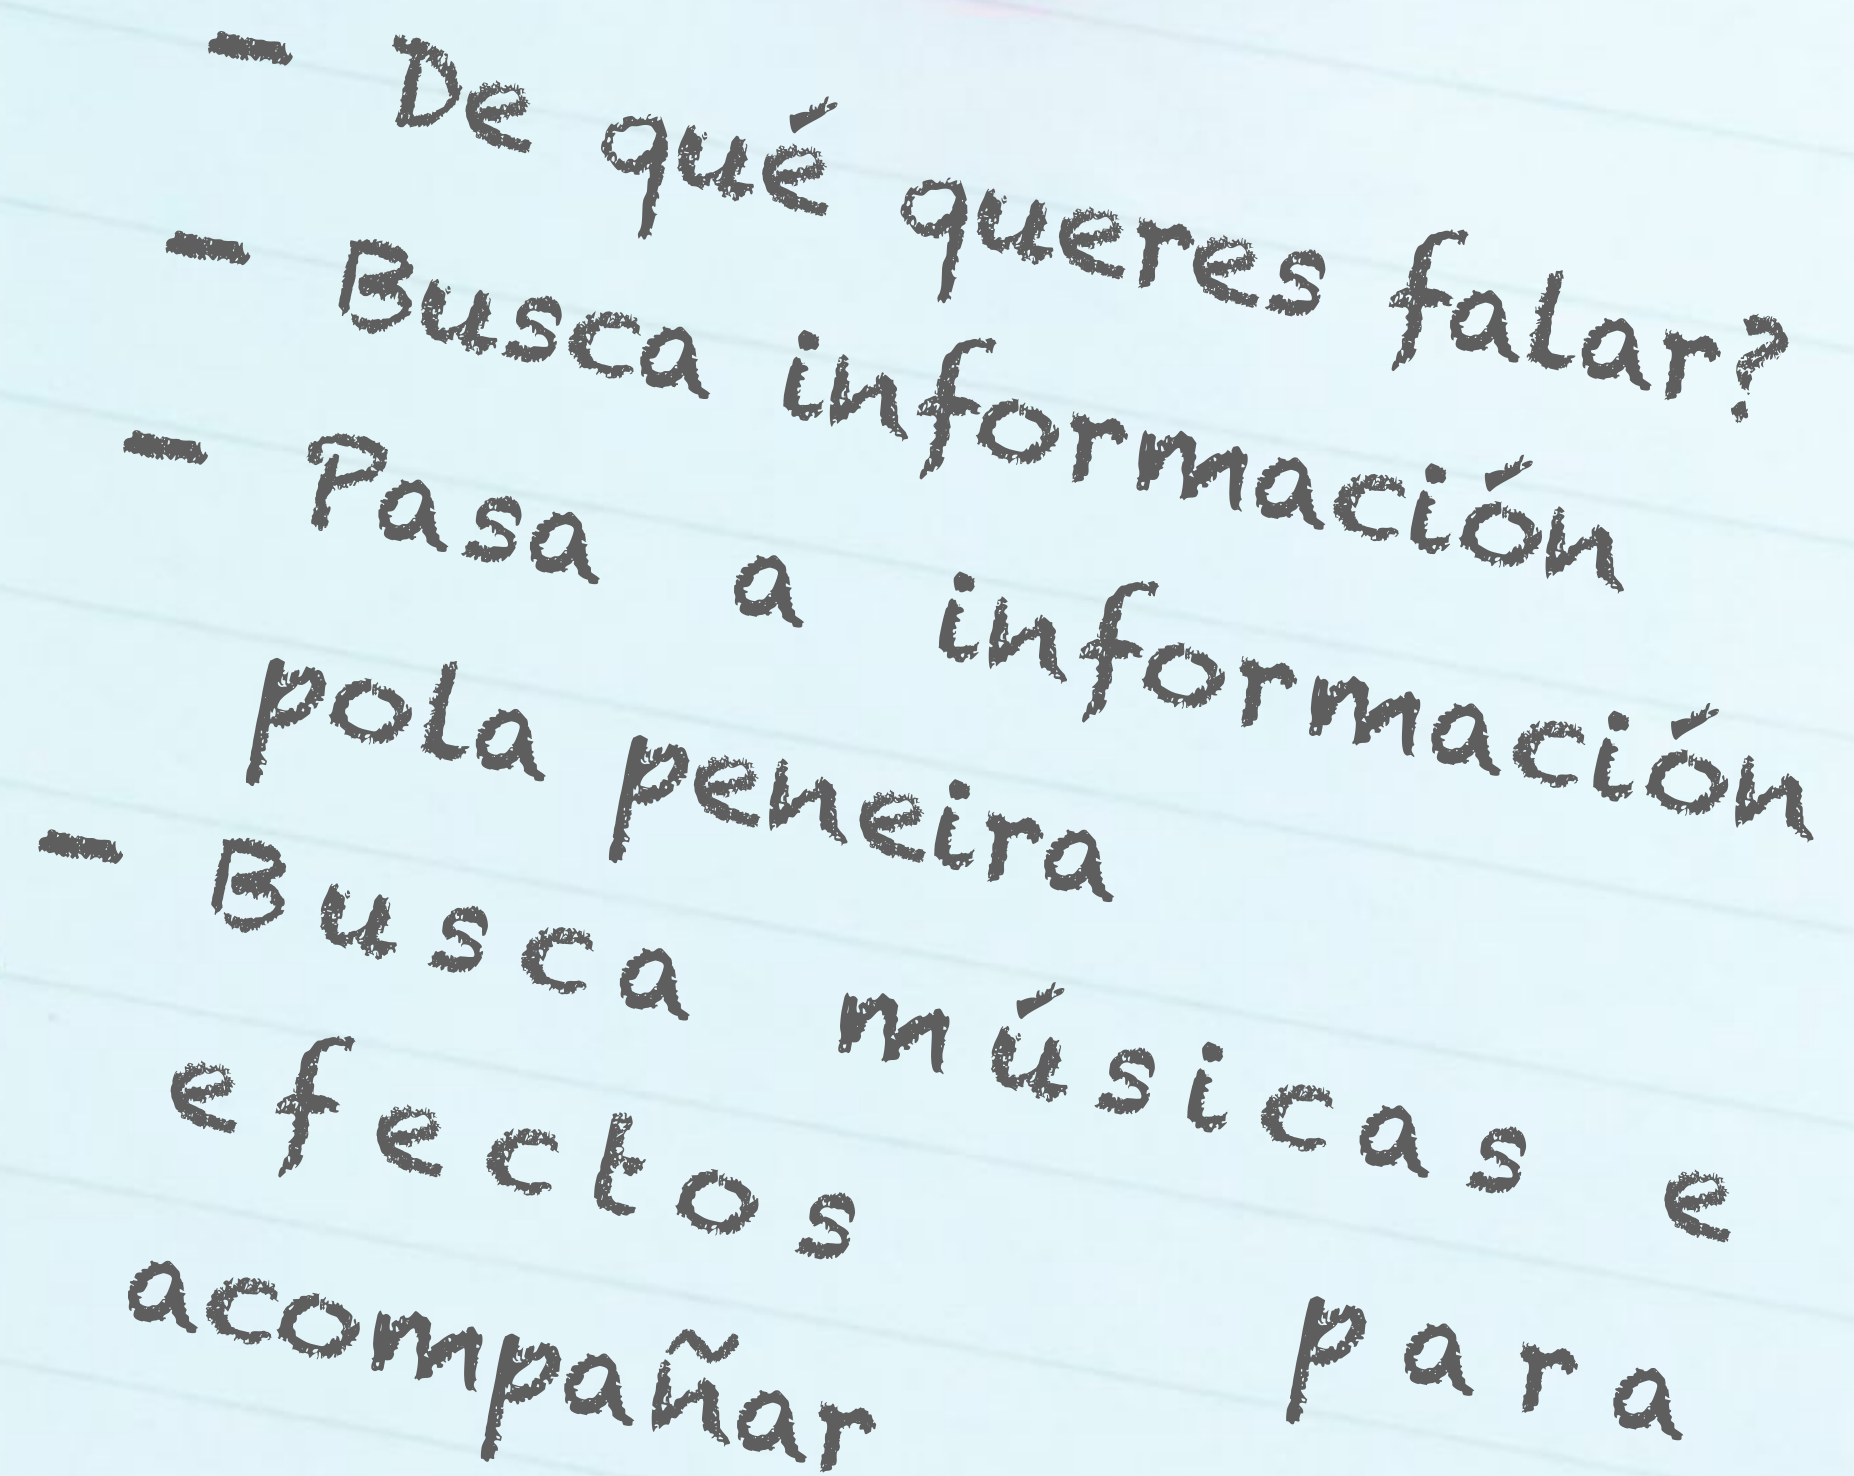 - De qué queres falar?
- Busca información
- Pasa a información
pola peneira
- Busca músicas e
efectos para
acompañar